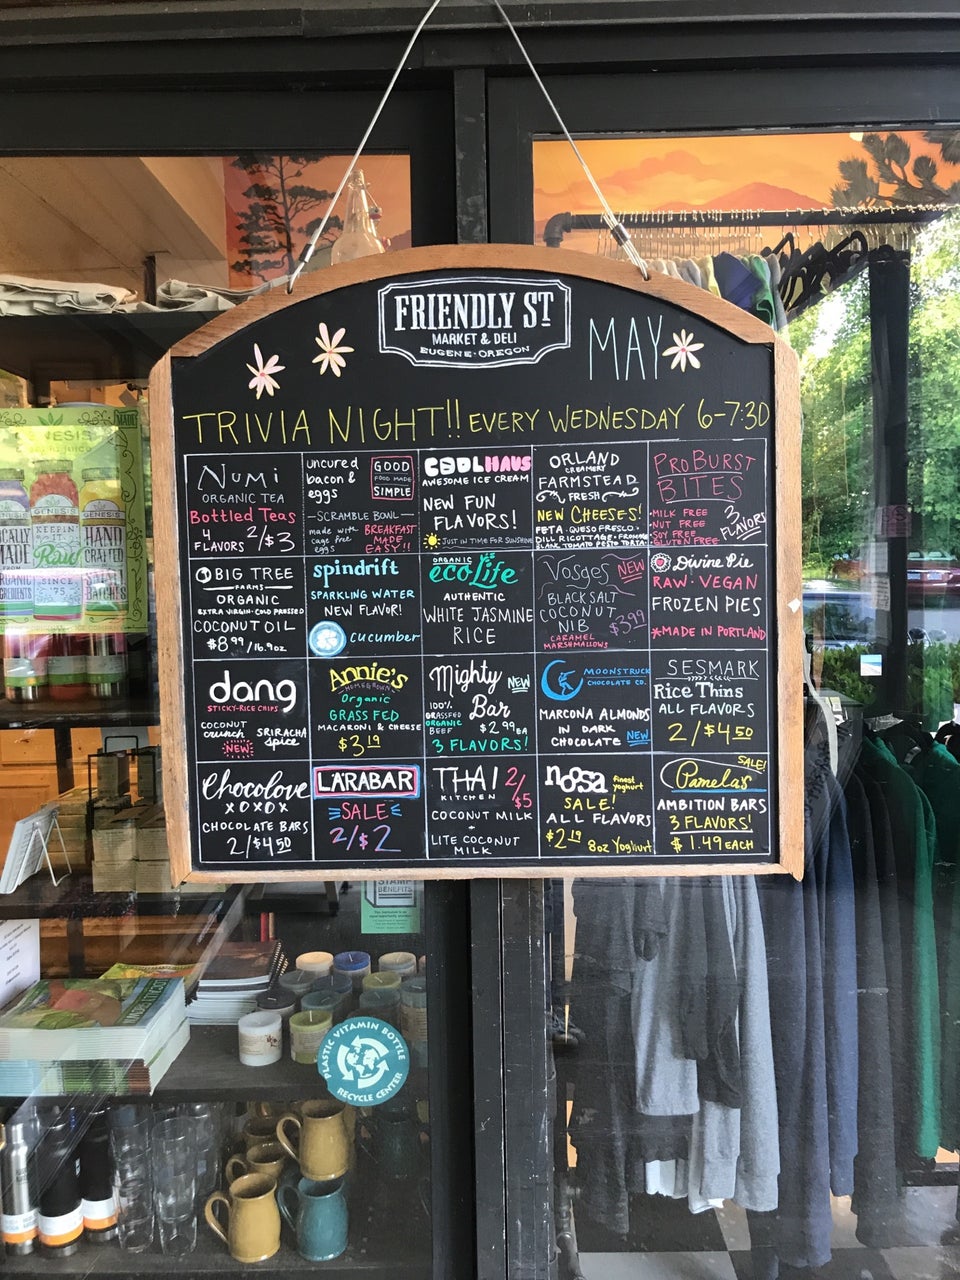 FRIENDLY ST
MARKET & DELI
EUGENE · OREGON
MAY
TRIVIA NIGHT!! EVERY WEDNESDAY 6-7:30
NUMI
ORGANIC TEA
Bottled Teas
4 FLAVORS 2/$3
uncured
bacon &
eggs
GOOD
FOOD MADE
SIMPLE
—SCRAMBLE BOWL—
made with
cage free
eggs
BREAKFAST
MADE
EASY!!
COOLHAUS
AWESOME ICE CREAM
NEW FUN
FLAVORS!
JUST IN TIME FOR SUNSHINE
ORLAND
CREAMERY
FARMSTEAD
FRESH
NEW CHEESES!
FETA · QUESO FRESCO ·
DILL RICOTTAGE · FROMAGE
BLANC TOMATO PESTO TORTA
PROBURST
BITES
·MILK FREE
·NUT FREE
·SOY FREE
·GLUTEN FREE
3
FLAVORS
BIG TREE
FARMS
ORGANIC
EXTRA VIRGIN · COLD PRESSED
COCONUT OIL
$8.99/16.9oz
spindrift
SPARKLING WATER
NEW FLAVOR!
cucumber
ORGANIC
ecolife
AUTHENTIC
WHITE JASMINE
RICE
Vosges NEW
BLACK SALT
COCONUT
NIB
$3.99
CARAMEL
MARSHMALLOWS
Divine Pie
RAW · VEGAN
FROZEN PIES
*MADE IN PORTLAND
dang
STICKY-RICE CHIPS
COCONUT
crunch
SRIRACHA
spice
NEW
Annie's
HOMEGROWN
Organic
GRASS FED
MACARONI & CHEESE
$3.19
Mighty NEW
Bar
100%
GRASSFED
ORGANIC
BEEF
$2.99 EA
3 FLAVORS!
MOONSTRUCK
CHOCOLATE CO.
MARCONA ALMONDS
IN DARK
CHOCOLATE NEW
SESMARK
Rice Thins
ALL FLAVORS
2/$4.50
Chocolove
XOXOX
CHOCOLATE BARS
2/$4.50
LÄRABAR
SALE
2/$2
THAI 2/$5
KITCHEN
COCONUT MILK
+
LITE COCONUT
MILK
noosa finest yoghurt
SALE!
ALL FLAVORS
$2.19 8oz Yoghurt
SALE!
Pamela's
AMBITION BARS
3 FLAVORS!
$1.49 EACH
MADE
GENESIS
GENESIS
GENESIS
KEEPIN
it
Raw
SINCE
'75
HAND
CRAFTED
BATCHES
STAMP
BENEFITS
PLASTIC VITAMIN BOTTLE
RECYCLE CENTER